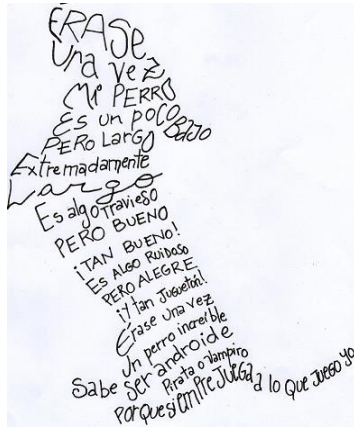 ERASE
Una vez
Mi PERRO
Es un poco BaJo
PERo LargO
Extremadamente
Largo
Es algo Travieso
PERO BUENO
¡TAN BUENO!
Es ALGO RUidoso
PERO ALEGRE
¡Y tan Juguetón!
Erase una vez
Un perro increíble
Sabe ser androide
Pirata o Vampiro
PorQue siEmPRE JUEGa a lo Que JUEGO YO